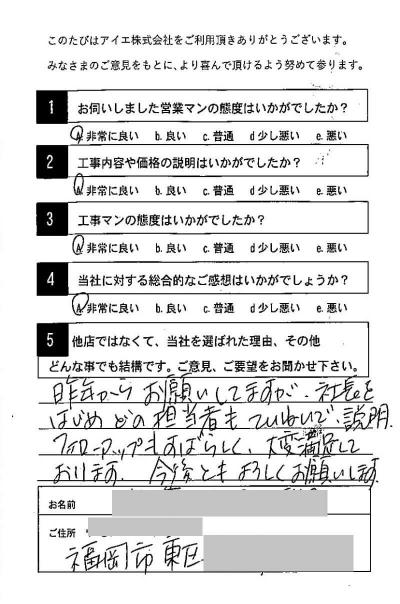 このたびはアイエ株式会社をご利用頂きありがとうございます。
みなさまのご意見をもとに、より喜んで頂けるよう努めて参ります。
1 お伺いしました営業マンの態度はいかがでしたか？
a 非常に良い b. 良い c. 普通 d 少し悪い e. 悪い
2 工事内容や価格の説明はいかがでしたか？
a 非常に良い b. 良い c. 普通 d 少し悪い e. 悪い
3 工事マンの態度はいかがでしたか？
a 非常に良い b. 良い c. 普通 d 少し悪い e. 悪い
4 当社に対する総合的なご感想はいかがでしょうか？
a 非常に良い b. 良い c. 普通 d 少し悪い e. 悪い
5 他店ではなくて、当社を選ばれた理由、その他
どんな事でも結構です。ご意見、ご要望をお聞かせ下さい。
昨年からお願いしてますが、社長を
はじめどの担当者もていねいで、説明、
フォローアップもすばらしく、大変満足して
おります。今後ともよろしくお願いします。
お名前
ご住所
福岡市東区